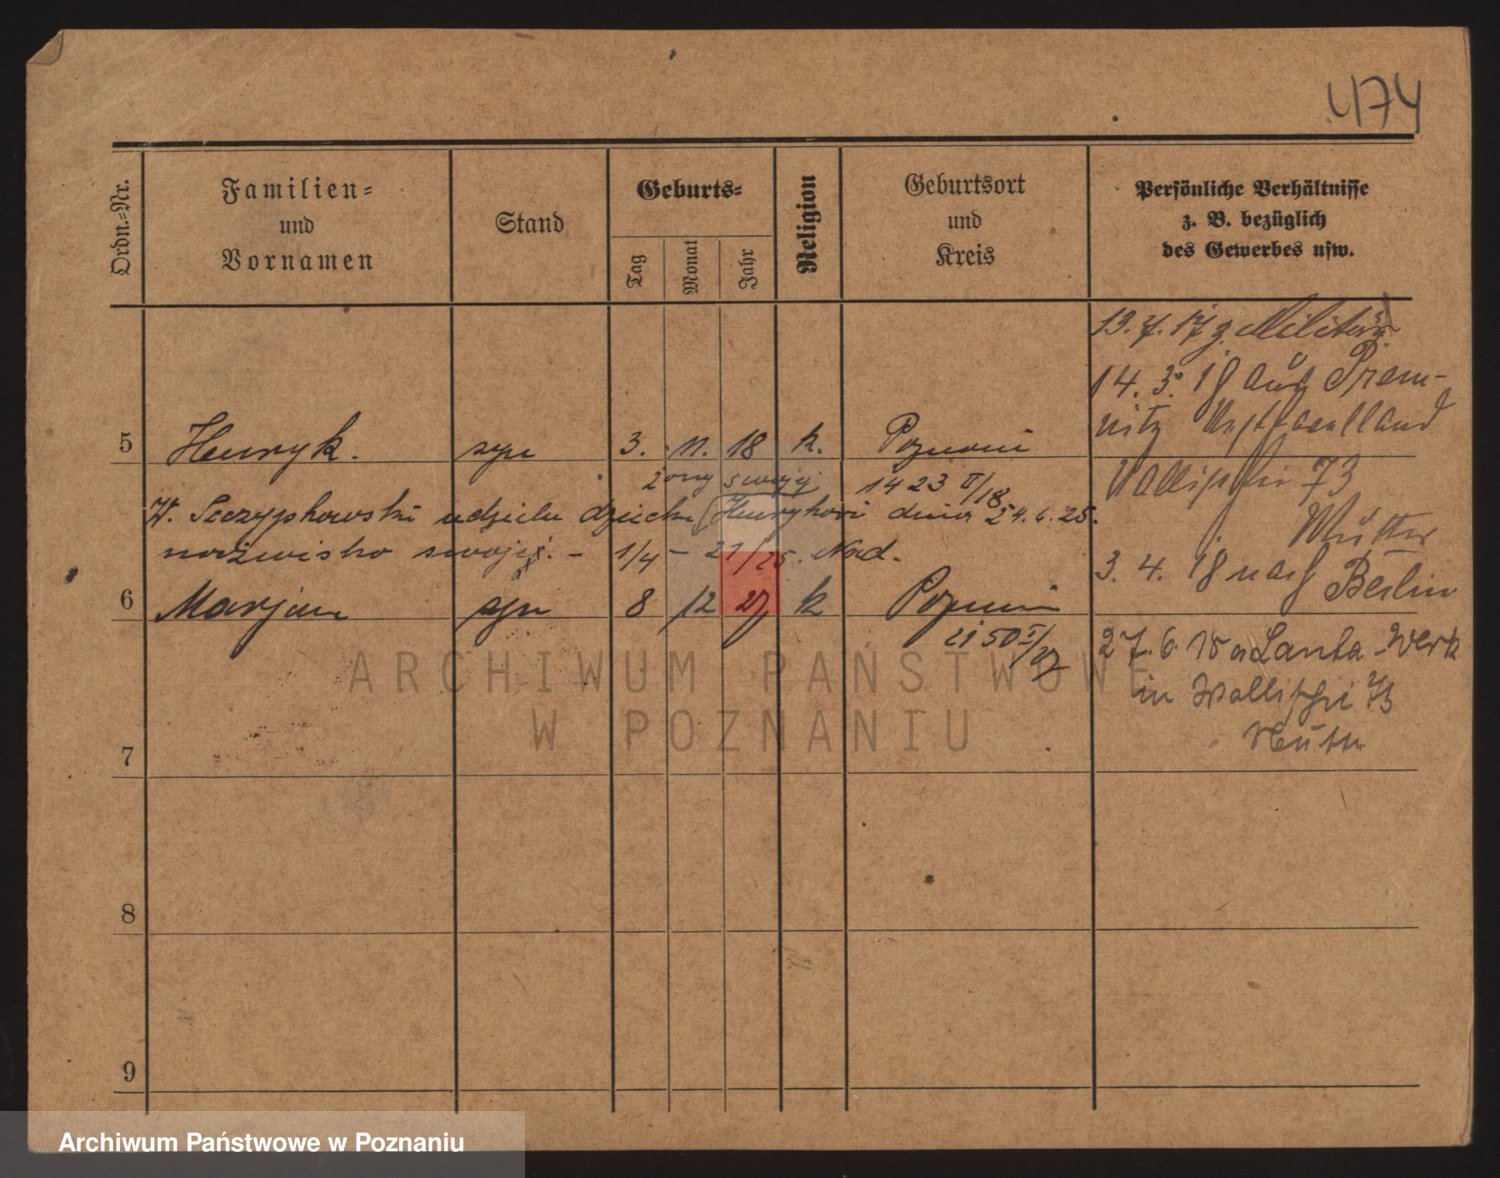 474
Ordn.-Nr.
Familien-
und
Vornamen
Stand
Geburts-
Tag
Monat
Jahr
Religion
Geburtsort
und
Kreis
Persönliche Verhältnisse
z. B. bezüglich
des Gewerbes usw.
13. 7. 17 z. Militär
14. 3. 18 aus Prem-
nitz Westhavelland
Wallischei 73
Mutter
3. 4. 18 nach Berlin
27. 6. 18 a Lanta-Werk
in Wallischei 73
Mutter
5 Henryk. syn 3. 11. 18 k. Poznań
żony swojej 1423 II/18
W. Szczypkowski udziela dziecku Henrykowi dnia 24.6.25.
nazwisko swoje. – 1/4 – 21/25. Nad.
6 Marjan syn 8 12 27 k Poznań
2150 I/27
7
8
9
ARCHIWUM PAŃSTWOWE
W POZNANIU
Archiwum Państwowe w Poznaniu